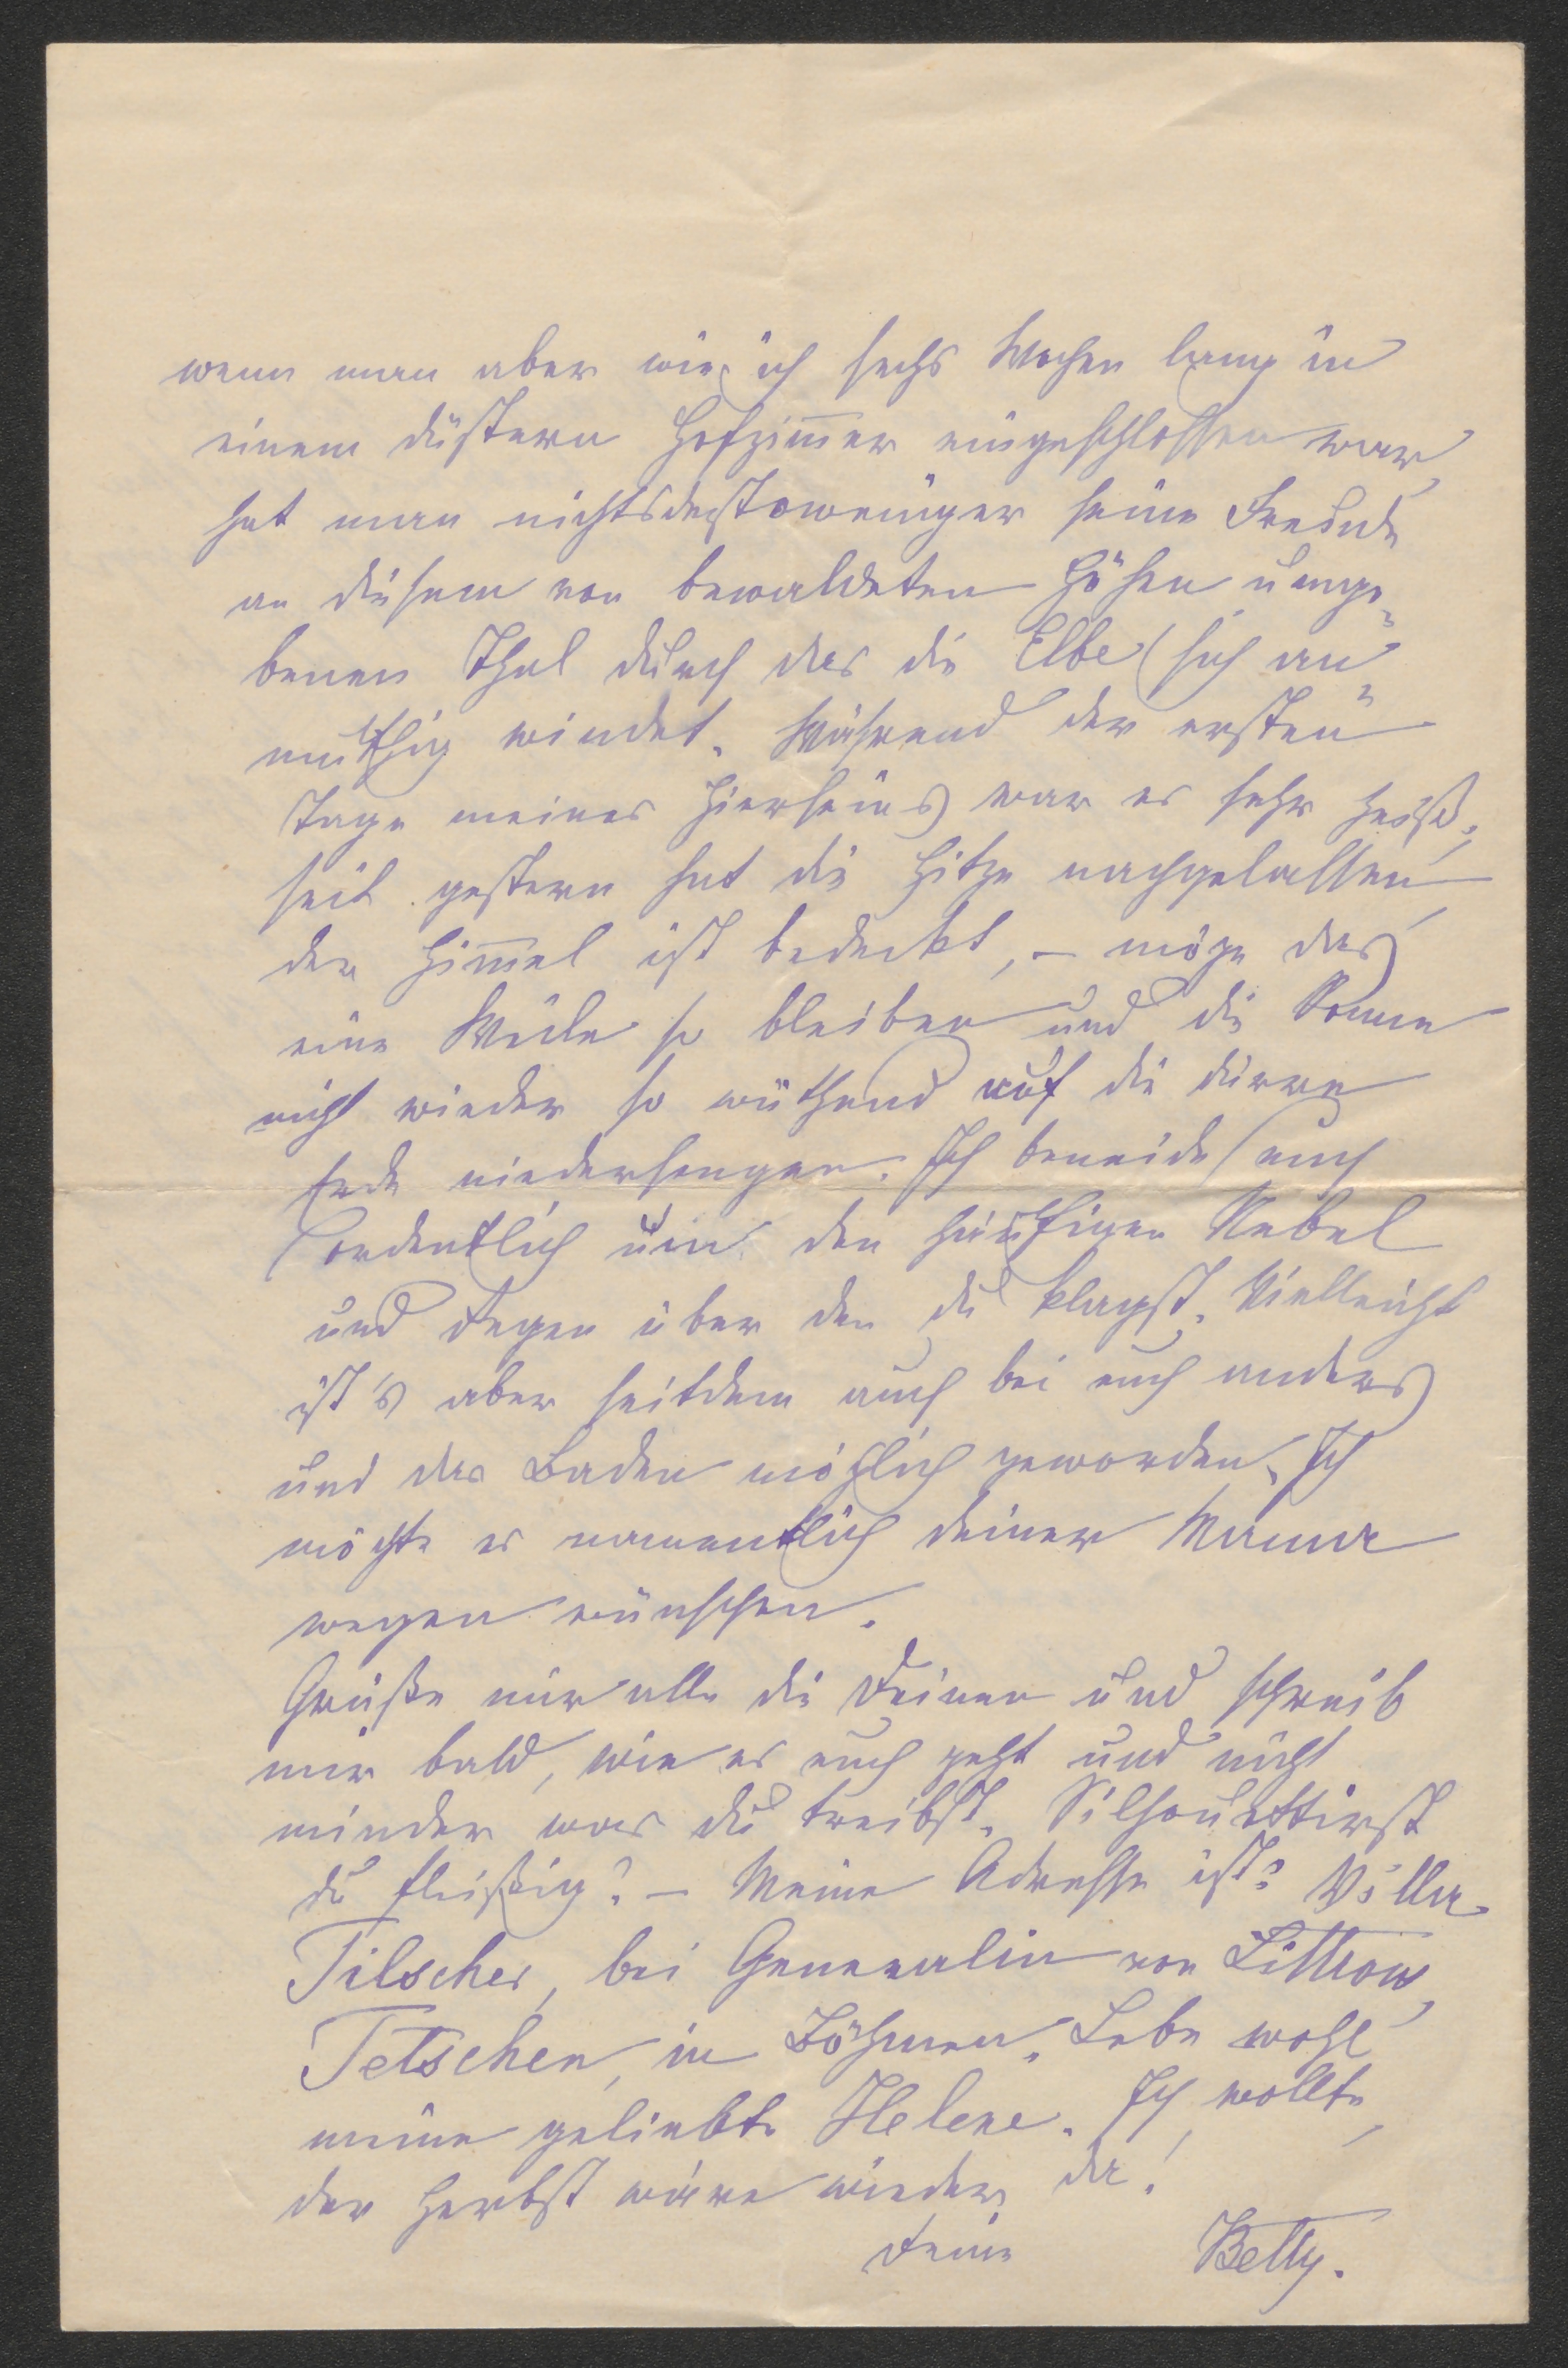 wenn man aber wie ich sechs Wochen lang in
einem düstern Hofzim̅er eingeschlossen war
hat man nichtsdestoweniger seine Freude
an diesem von bewaldeten Höhen umge-
benen Thal durch das die Elbe sich an-
muthig windet. Während der ersten
Tage meines Hierseins war es sehr heiß,
seit gestern hat die Hitze nachgelassen
der Him̅el ist bedeckt, – möge das
eine Weile so bleiben und die Sonne
nicht wieder so wüthend auf die dürre
Erde niedersengen. Ich beneide euch
ordentlich um den häufigen Nebel
und Regen über den du klagst. Vielleicht
ist's aber seitdem auch bei euch anders
und das Baden möglich geworden. Ich
möchte es namentlich deiner Mama
wegen wünschen.
Grüße mir alle die Deinen und schreib
mir bald, wie es euch geht und nicht
minder was du treibst. Silhouettirst
du fleißig? – Meine Adresse ist: Villa
Tilscher, bei Generalin von Littrow,
Tetschen, in Böhmen. Lebe wohl
meine geliebte Helene. Ich wollte,
der Herbst wäre wieder da!
Deine Betty.